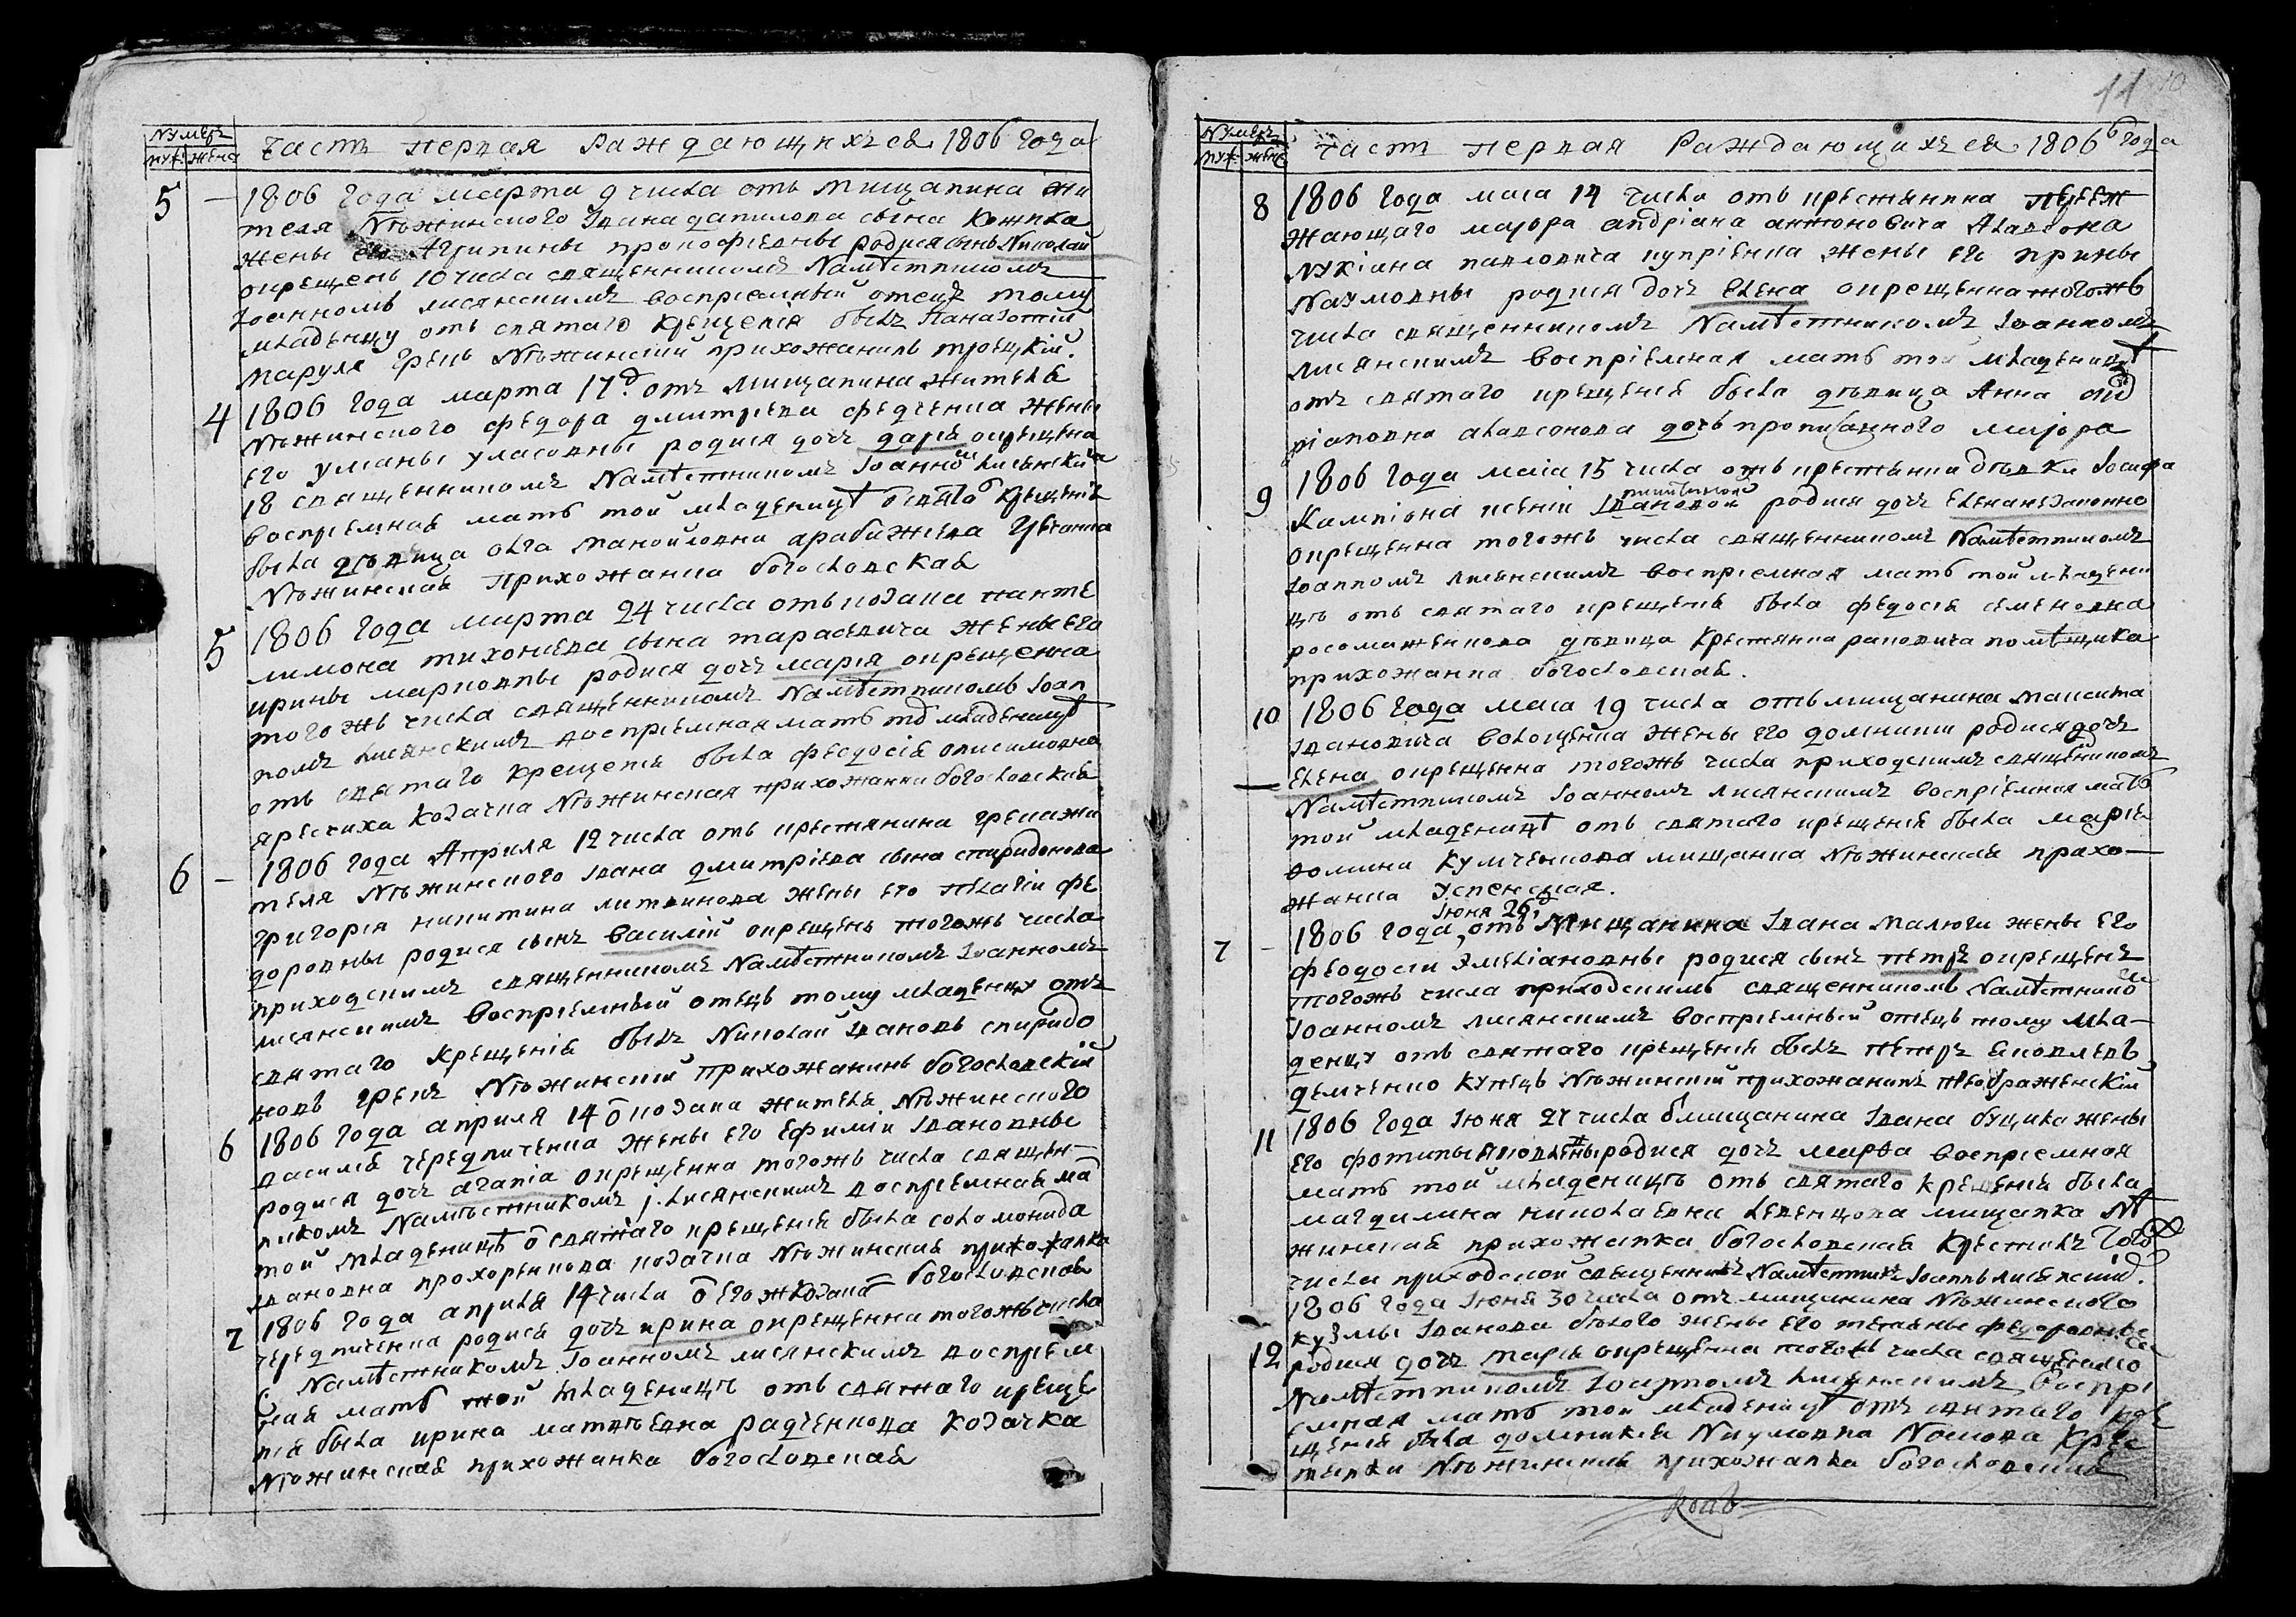 нумеръ
муж: жен:
часть первая Раждающихся 1806 года
5 — 1806 года марта 9 числа отъ мищанина жи
теля Нѣжинского Iвана данилова сына
жены его Агрипины прокофіевны родися сынъ Николай
окрещенъ 10 числа священникомъ Намѣстникомъ
Iоанномъ лисянскимъ воспріемный отецъ тому
младенцу отъ святаго крещенія былъ Панаіотъ
маруля грекъ Нѣжинскій прихожанинъ троецкій.
4 1806 года марта 17д. отъ мищанина жителя
Нѣжинского федора дмитріева федченка жены
его улиты уласовны родися дочь дарія окрещена
18 священникомъ Намѣстникомъ Iоанномъ лисянскимъ
воспріемная мать той младеницѣ о святаго крещенія
была дѣвица олга манойловна арабажіева гречанка
Нѣжинская Прихожанка богословская
5 1806 года марта 24 числа отъ козака панте
лимона тихонъева сына тарасевича жены его
ирины марковны родися дочь марія окрещенна
того жъ числа священникомъ Намѣстникомъ Iоан
номъ лисянскимъ воспріемная мать той младеницѣ
отъ святаго крещенія была феодосія онисимовна
яресчиха козачка Нѣжинская прихожанка богословская
6 — 1806 года Априля 12 числа отъ крестянина грека жи
теля Нѣжинского Iвана дмитріева сына спиридонова
григорія никитина литвинова жены его пелагіи фе
доровны родися сынъ василій окрещенъ тогожъ числа
приходскимъ священникомъ Намѣстникомъ Iоанномъ
лисянскимъ воспріемный отецъ тому младенцу отъ
святаго крещенія былъ Николай Iвановъ спиридо
новъ грекъ Нѣжинскій прихожанинъ богословскій
6 1806 года априля 14 о козака жителя Нѣжинского
василя чередниченка жены его ефиміи Iвановны
родися дочь агапіа окрещенна тогожъ числа священ—
никомъ Намѣстникомъ i. лисянскимъ воспріемная ма
той младеницѣ о святаго крещенія была соломонида
Iвановна прохоренкова козачка Нѣжинская прихожанка
7 1806 года априля 14 числа о егожъ козака богословская
чередниченка родися дочь ирина окрещенна тогожъ числа
С Намѣстникомъ Iоанномъ лисянскимъ воспріем
ная мать той младеницѣ отъ святаго креще
нія была ирина матвѣевна радченкова козачка
Нѣжинская прихожанка богословская
11 10
нумеръ
муж: жен:
част первая Раждающихся 1806 года
8 1806 года маіа 14 числа отъ крестьянина
жающаго маiора андріана антоновича
лукіана павловича купріенка жены его ирины
Наумовны родися дочь Елена окрещенна тогожъ
числа священникомъ Намѣстникомъ Iоанномъ
лисянскимъ воспріемная мать той младеницѣ
отъ святаго крещенія была дѣвица Анна анд
ріановна дочь прописанного маiора
9 1806 года маiа 15 числа отъ крестьянки дѣвки Iосифа
ксеніи Iвановой родися дочь Елена незаконно
окрещенна тогожъ числа священникомъ Намѣстникомъ
Iоанномъ лисянскимъ воспріемная мать той младени
цѣ отъ святаго крещенія была федосія семеновна
росомаженкова дѣвица крестянка раковича помѣщика
прихожанка богословская.
10 1806 года маiа 19 числа отъ мищанина
Iвановича волощенка жены его домникіи родися дочь
Елена окрещенна тогожъ числа приходскимъ священникомъ
Намѣстникомъ Iоанномъ лисянскимъ воспріемная мать
той младеницѣ отъ святаго крещенія была марія
фомина кумченкова мищанка Нѣжинская прихо—
жанка Успенская.
Iюня 26д
7 — 1806 года, отъ Мищанина Iвана малюги жены его
феодосіи Эмеліановны родися сынъ петръ окрещенъ
тогожъ числа приходскимъ священникомъ Намѣстником
Iоанномъ лисянскимъ воспріемный отецъ тому мла—
денцу отъ святаго крещенія былъ петръ яковлевъ
демченко купецъ Нѣжинскій прихожанинъ преображенскій
11 1806 года Iюня 27 числа о мищанина Iвана буцика жены
его фотиньи яковлевны родися дочь марфа воспріемная
мать той младеницѣ отъ святаго крещенія была
магдилина николаевна леденцова мищанка Нѣ
жинская прихожанка богословская крестилъ того
числа приходской священникъ Намѣстникъ Iоаннъ лисянскій.
12 1806 года Iюня 30 числа отъ мищанина Нѣжинского
кузмы Iванова бѣлого жены его татіаны федоровны
родися дочь марія окрещенна тогожъ числа священно
Намѣстникомъ Iоанномъ лисянскимъ воспрі
емная мать той младеницѣ отъ святаго кре
щенія была домникія Наумовна Крес
тянка Нѣжинская прихожанка богословская